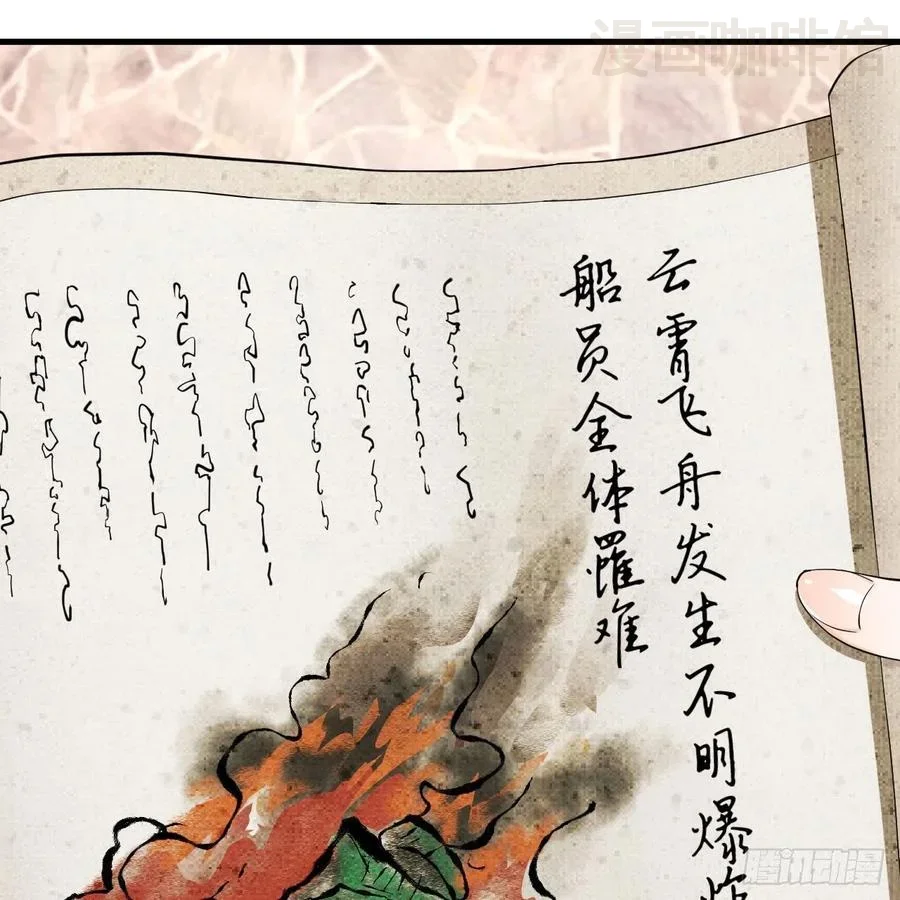 漫画咖啡馆
云霄飞舟发生不明爆炸
船员全体罹难
腾讯动漫